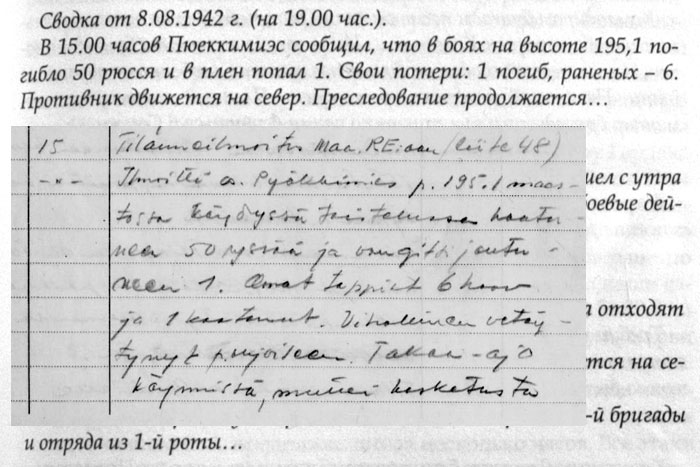 Сводка от 8.08.1942 г. (на 19.00 час.).
В 15.00 часов Пюеккимиэс сообщил, что в боях на высоте 195,1 по-
гибло 50 рюсся и в плен попал 1. Свои потери: 1 погиб, раненых – 6.
Противник движется на север. Преследование продолжается…
15 Tilanneilmoitus Maa.RE:aan (liite 48)
-"- Ilmoitti p. 195.1 maas-
tossa käydyssä taistelussa kaatu-
neen 50 ryssää ja vangiksi joutu-
neen 1. Omat tappiot 6 haav
ja 1 kaatunut. Vihollinen vetäy-
tynyt pohjoiseen. Takaa-ajo
käynnissä, mutta kosketusta
шел с утра
боевые дей-
а отходят
тся на се-
-й бригады
и отряда из 1-й роты…